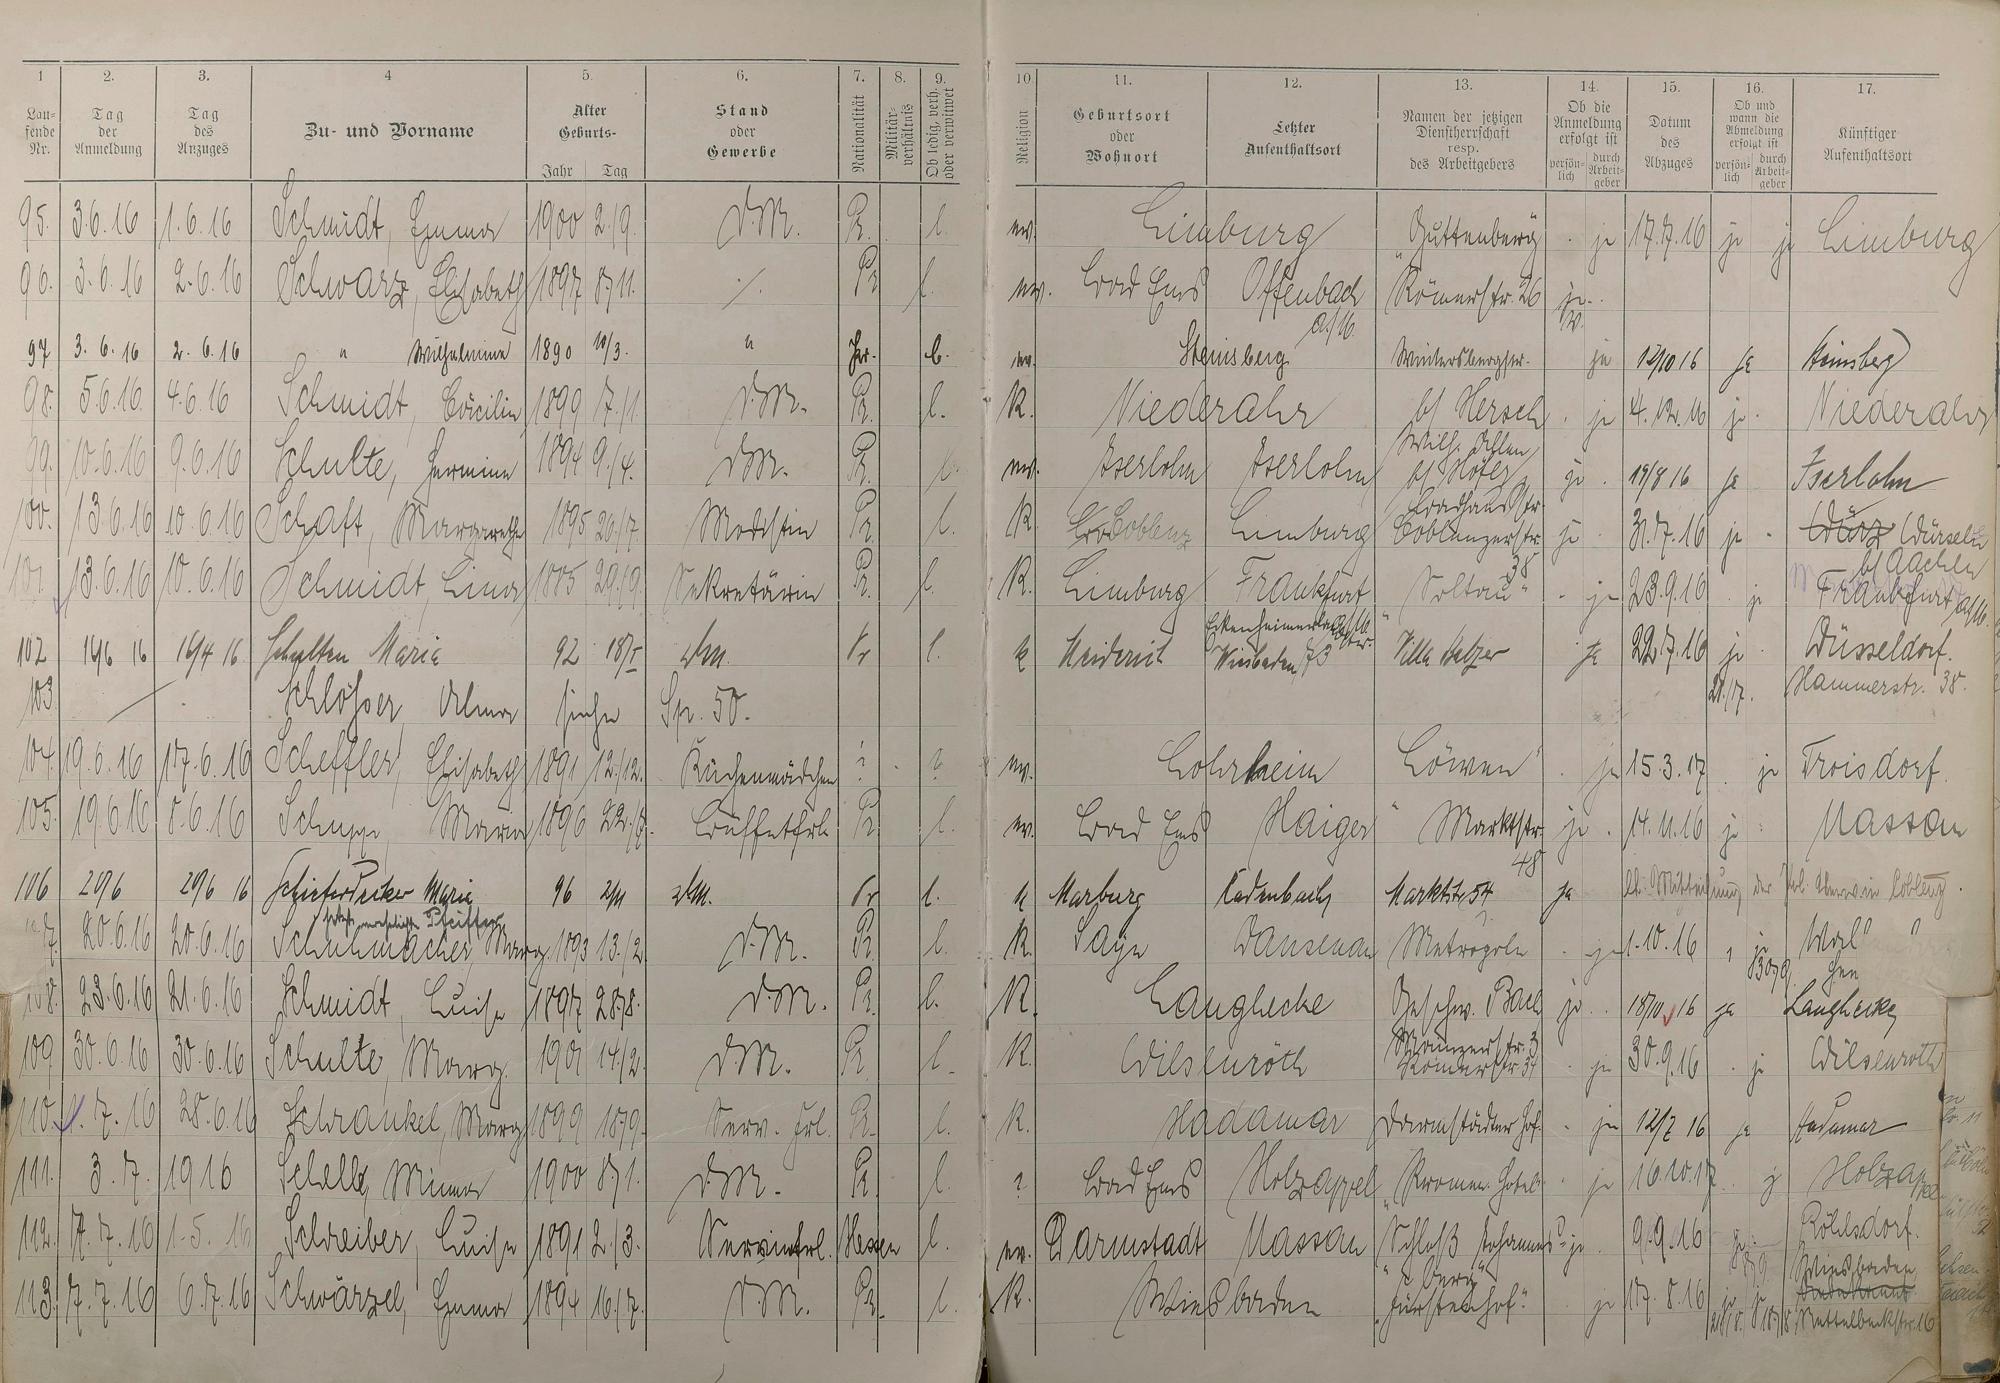 1 2. 3. 4 5. 6. 7. 8. 9. 10. 11. 12. 13. 14. 15. 16. 17.
Lau-fende Nr. Tag der Anmeldung Tag des Anzuges Zu- und Vorname Alter Geburts- Jahr Tag Stand oder Gewerbe Nationalität Militär-verhältnis Ob ledig, verh. oder verwitwet Religion Geburtsort oder Wohnort Letzter Aufenthaltsort Namen der jetzigen Dienstherrschaft resp. des Arbeitgebers Ob die Anmeldung erfolgt ist persön-lich durch Arbeit-geber Datum des Abzuges Ob und wann die Abmeldung erfolgt ist persön-lich durch Arbeit-geber Künftiger Aufenthaltsort
95. 3.6.16 1.6.16 Schmidt, Emma 1900 2./9. D.M. Pr. l. ev. Limburg Guttenberg ja 17.7.16 ja ja Limburg
96. 3.6.16 2.6.16 Schwarz, Elisabeth 1897 8/11. ./. Pr l. ev. Bad Ems Offenbach a/M. Römerstr. 26 ja.
97 3.6.16 2.6.16 " Wilhelmine 1890 10/3. " Pr. l. ev. Steinsberg Wintersbergstr. ja 12/10 16 ja Steinsberg
98. 5.6.16. 4.6.16 Schmidt, Cäcilia 1899 7./1. D.M. Pr. l. K. Niederahr b/ Hersch ja 4.12.16 ja Niederahr
99. 10.6.16 9.6.16 Schulte, Hermine 1894 9./4. D.M. Pr. l. ev. Iserlohn Iserlohn b/ Höfer Badhausstr. ja 19/8 16 ja Iserlohn
100. 13.6.16 10.6.16 Schaft, Margarethe 1895 20./7. Modistin Pr. l. K. Coblenz Limburg Coblenzerstr. 38 ja 31.7.16 ja Würseln b/ Aachen
101. 13.6.16 10.6.16 Schmidt, Lina 1885 29./9. Sekretärin Pr. l. K. Limburg Frankfurt a/M. "Soltau" ja 23.9.16 ja Frankfurt a/M.
102 14/6 16 16/4 16 Schulten Maria 92 18/5 Pr l. k Meiderich Wiesbaden Villa ja 22.7.16 ja 21./7. Düsseldorf. Hammerstr. 38.
103. Schlösser, Alma siehe Sp. 50.
104. 19.6.16 17.6.16 Scheffler, Elisabeth 1891 12./12. Küchenmädchen ? ? ev. Lohrheim Löwen ja 15.3.17 ja Troisdorf.
105. 19.6.16 8.6.16 Schupp, Maria 1896 22./8. Büffetfrl. Pr l. ev. Bad Ems Haiger Marktstr. 48 ja 14.11.16 ja Nassau
106 20/6 20/6 16 Maria 96 2/11 Pr l. k Marburg Kadenbach Marktstr 54 ja lt. Mitteilung der Pol. Coblenz.
107. 20.6.16 20.6.16 Schuhmacher, Marg. 1893 13./2. D.M. Pr l. K. Sayn Dausenau Metropole ja 1.10.16 ja
108. 23.6.16 21.6.16 Schmidt, Luise 1897 28/8. D.M. Pr. l. K. Langhecke Geschw. Bach ja 18/10 16 ja Langhecke
109 30.6.16 30.6.16 Schulte, Marg. 1901 14./2. D.M. Pr l. K. Wilsenroth Römerstr ja 30.9.16 ja Wilsenroth
110. 1.7.16 28.6.16 Schrankel, Marg 1899 18/9. Serv. Frl. Pr. l. K. Hadamar Darmstädter Hof. ja 12/7 16 ja Hadamar
111. 3.7. 1916 Schelle, Minna 1900 8/1. D.M. Pr. l. ? Bad Ems Holzappel "Promen. Hotel ja 16.10.17. ja Holzappel
112. 7.7.16 1.5.16 Schreiber, Luise 1891 2./3. Servierfrl. Hessen l. ev. Darmstadt Nassau "Schloß Johannisberg" ja 9.9.16 Röhlsdorf.
113. 7.7.16 6.7.16 Schwärzel, Emma 1894 16./7. D.M. Pr. l. K. Wiesbaden "Fürstenhof." ja 17.8.16 ja Wiesbaden Nettelbeckstr. 16